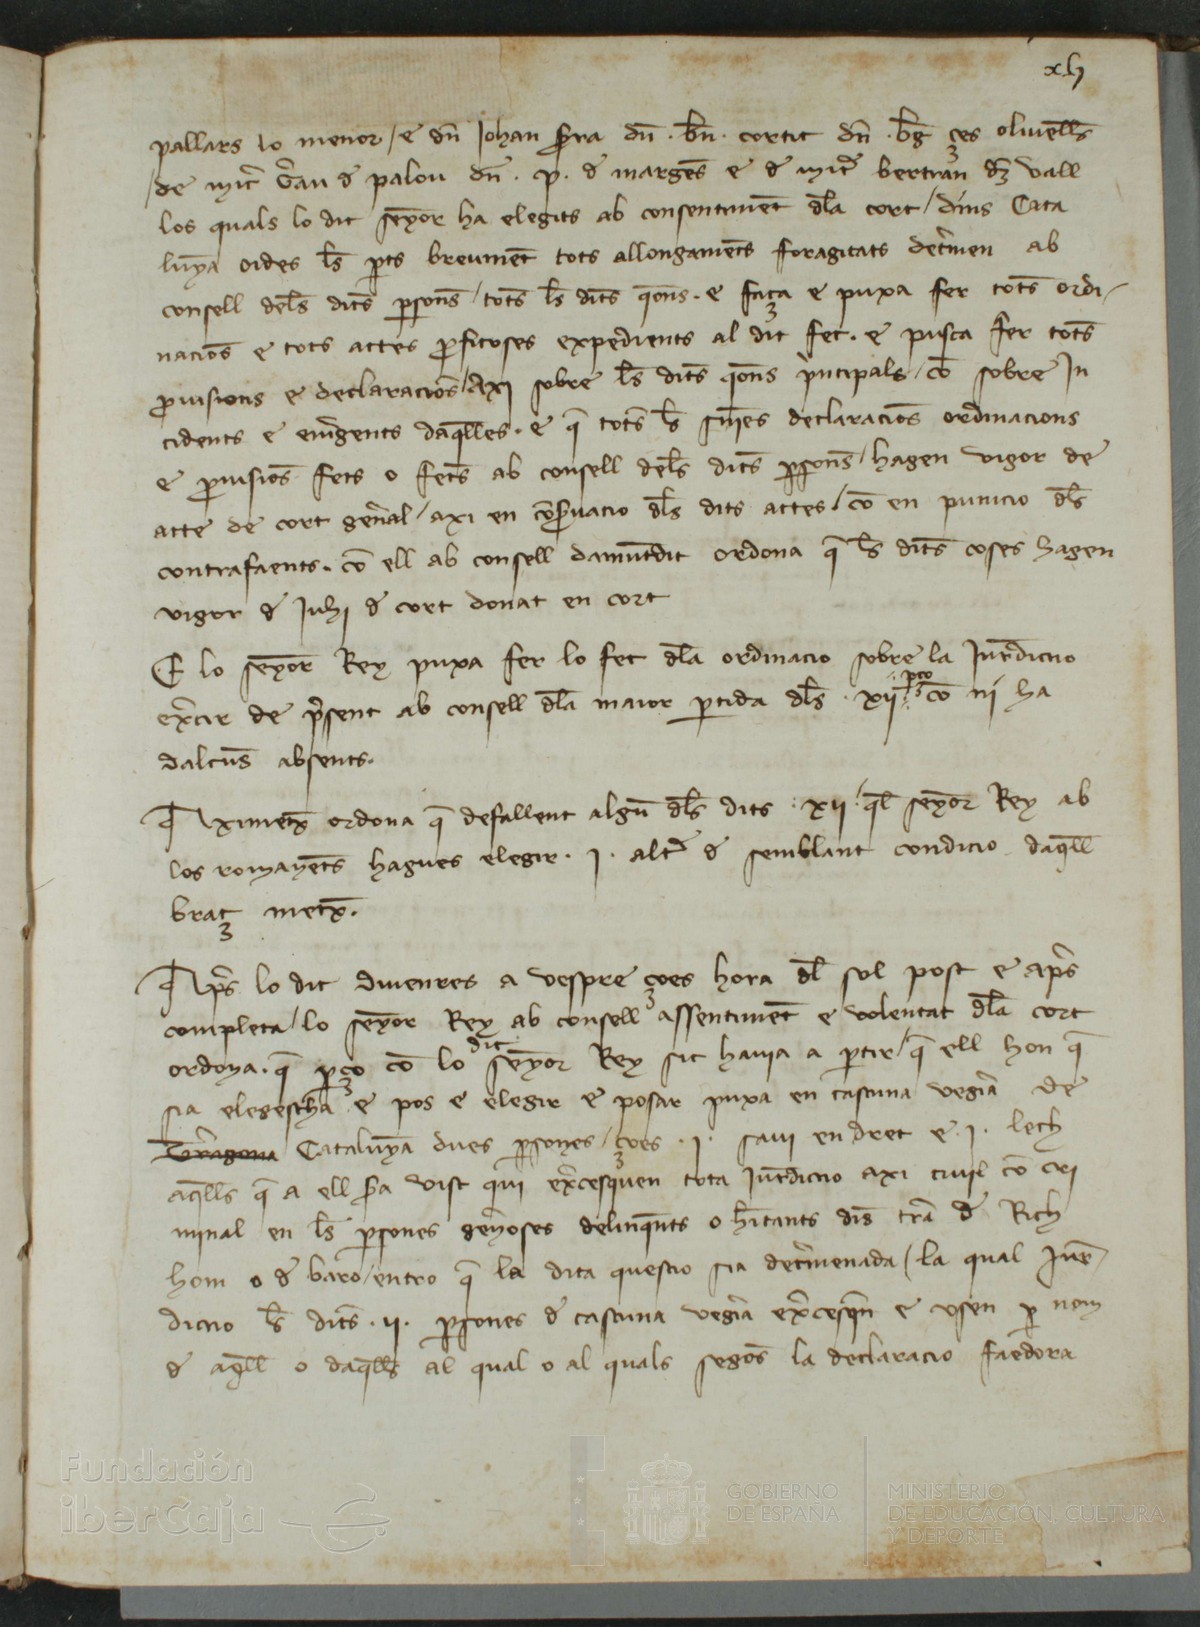 xlj
pallars lo menor / e dn̄ Johan s̄ra dn̄ · bn̄ · cortit dn̄ · bḡ çes oliuell̄s
/ de mic̄r Ḡrau đ palou dn̄ · p. đ margēs e đ mic̄r bertran dez vall
los quals lo dit senȳor ha elegits ab consentimēt dl̄a cort / dins Cata
lunȳa oides l̄s p̄ts breumēt tots allongamēts foragitats det̄rmen ab
consell del̄s dits p̄sons̄ / tots l̄s dits qōns · e faça e puxa fer tots ordi-
nacios̄ e tots actes p̄fitoses expedients al dit fet · e pusca fer tots
p̄uisions e declaracios̄ / Axi sobre l̄s dits qōns p̄ncipals / cō sobre In
cidents e em̄gents daq̄lles · e q̄ tots l̄s sm̄es declaracios̄ ordinacions
e p̄uisios̄ fets o fets ab consell del̄s dits p̄sons̄ / hagen vigor de
acte de cort gen̄al / axi en cōs̄uacio dl̄s dits actes / cō en punicio dl̄s
contrafaents · cō ell ab consell damūtdit ordona q̄ l̄s dits coses hagen
vigor đ Juhi đ cort donat en cort
E lo senȳor Rey puxa fer lo fet dl̄a ordinacio sobre la Jur̄diccio
ex̄cir de p̄sent ab consell dl̄a maior p̄tida dl̄s · xij · p̄ço cō ni ha
dalcun̄s absents.
Aximetx̄ ordona q̄ defallent algū dl̄s dits · xij · q̄l senȳor Rey ab
los romanȳēts hagues elegir · j · alt̄ đ semblant condicio daq̄ll
braç metx̄.
Ap̄s lo dit diuenres a vespre çoes hora dl̄ sol post e ap̄s
completa / lo senȳor Rey ab consell assentimēt e volentat dl̄a cort
ordona · q̄ p̄ço cō lo dit senȳor Rey sic hauia a p̄tir / q̄ ell hon q̄
sia elegescha e pos e elegir e posar puxa en cascuna veḡia de
T̄ragona Catalunȳa dues p̄sones / çoes · j · saui en dret e · j · lech
aq̄lls q̄ a ell s̄a vist qui ex̄cesquen tota Jur̄diccio axi ciuil cō cri
minal en l̄s p̄sones gen̄oses delinq̄nts o h̄itants dis̄ t̄ra đ Rich
hom o đ baro / entro q̄ la dita questio sia det̄rmenada / la qual Jur̄-
diccio l̄s dits · ij · p̄sones đ cascuna veḡia ex̄cesq̄n e vsen p̄ nom
đ aq̄ll o daq̄lls al qual o al quals segos̄ la declaracio faedora
Fundación
iberCaja
GOBIERNO
DE ESPAÑA
MINISTERIO
DE EDUCACIÓN, CULTURA
Y DEPORTE